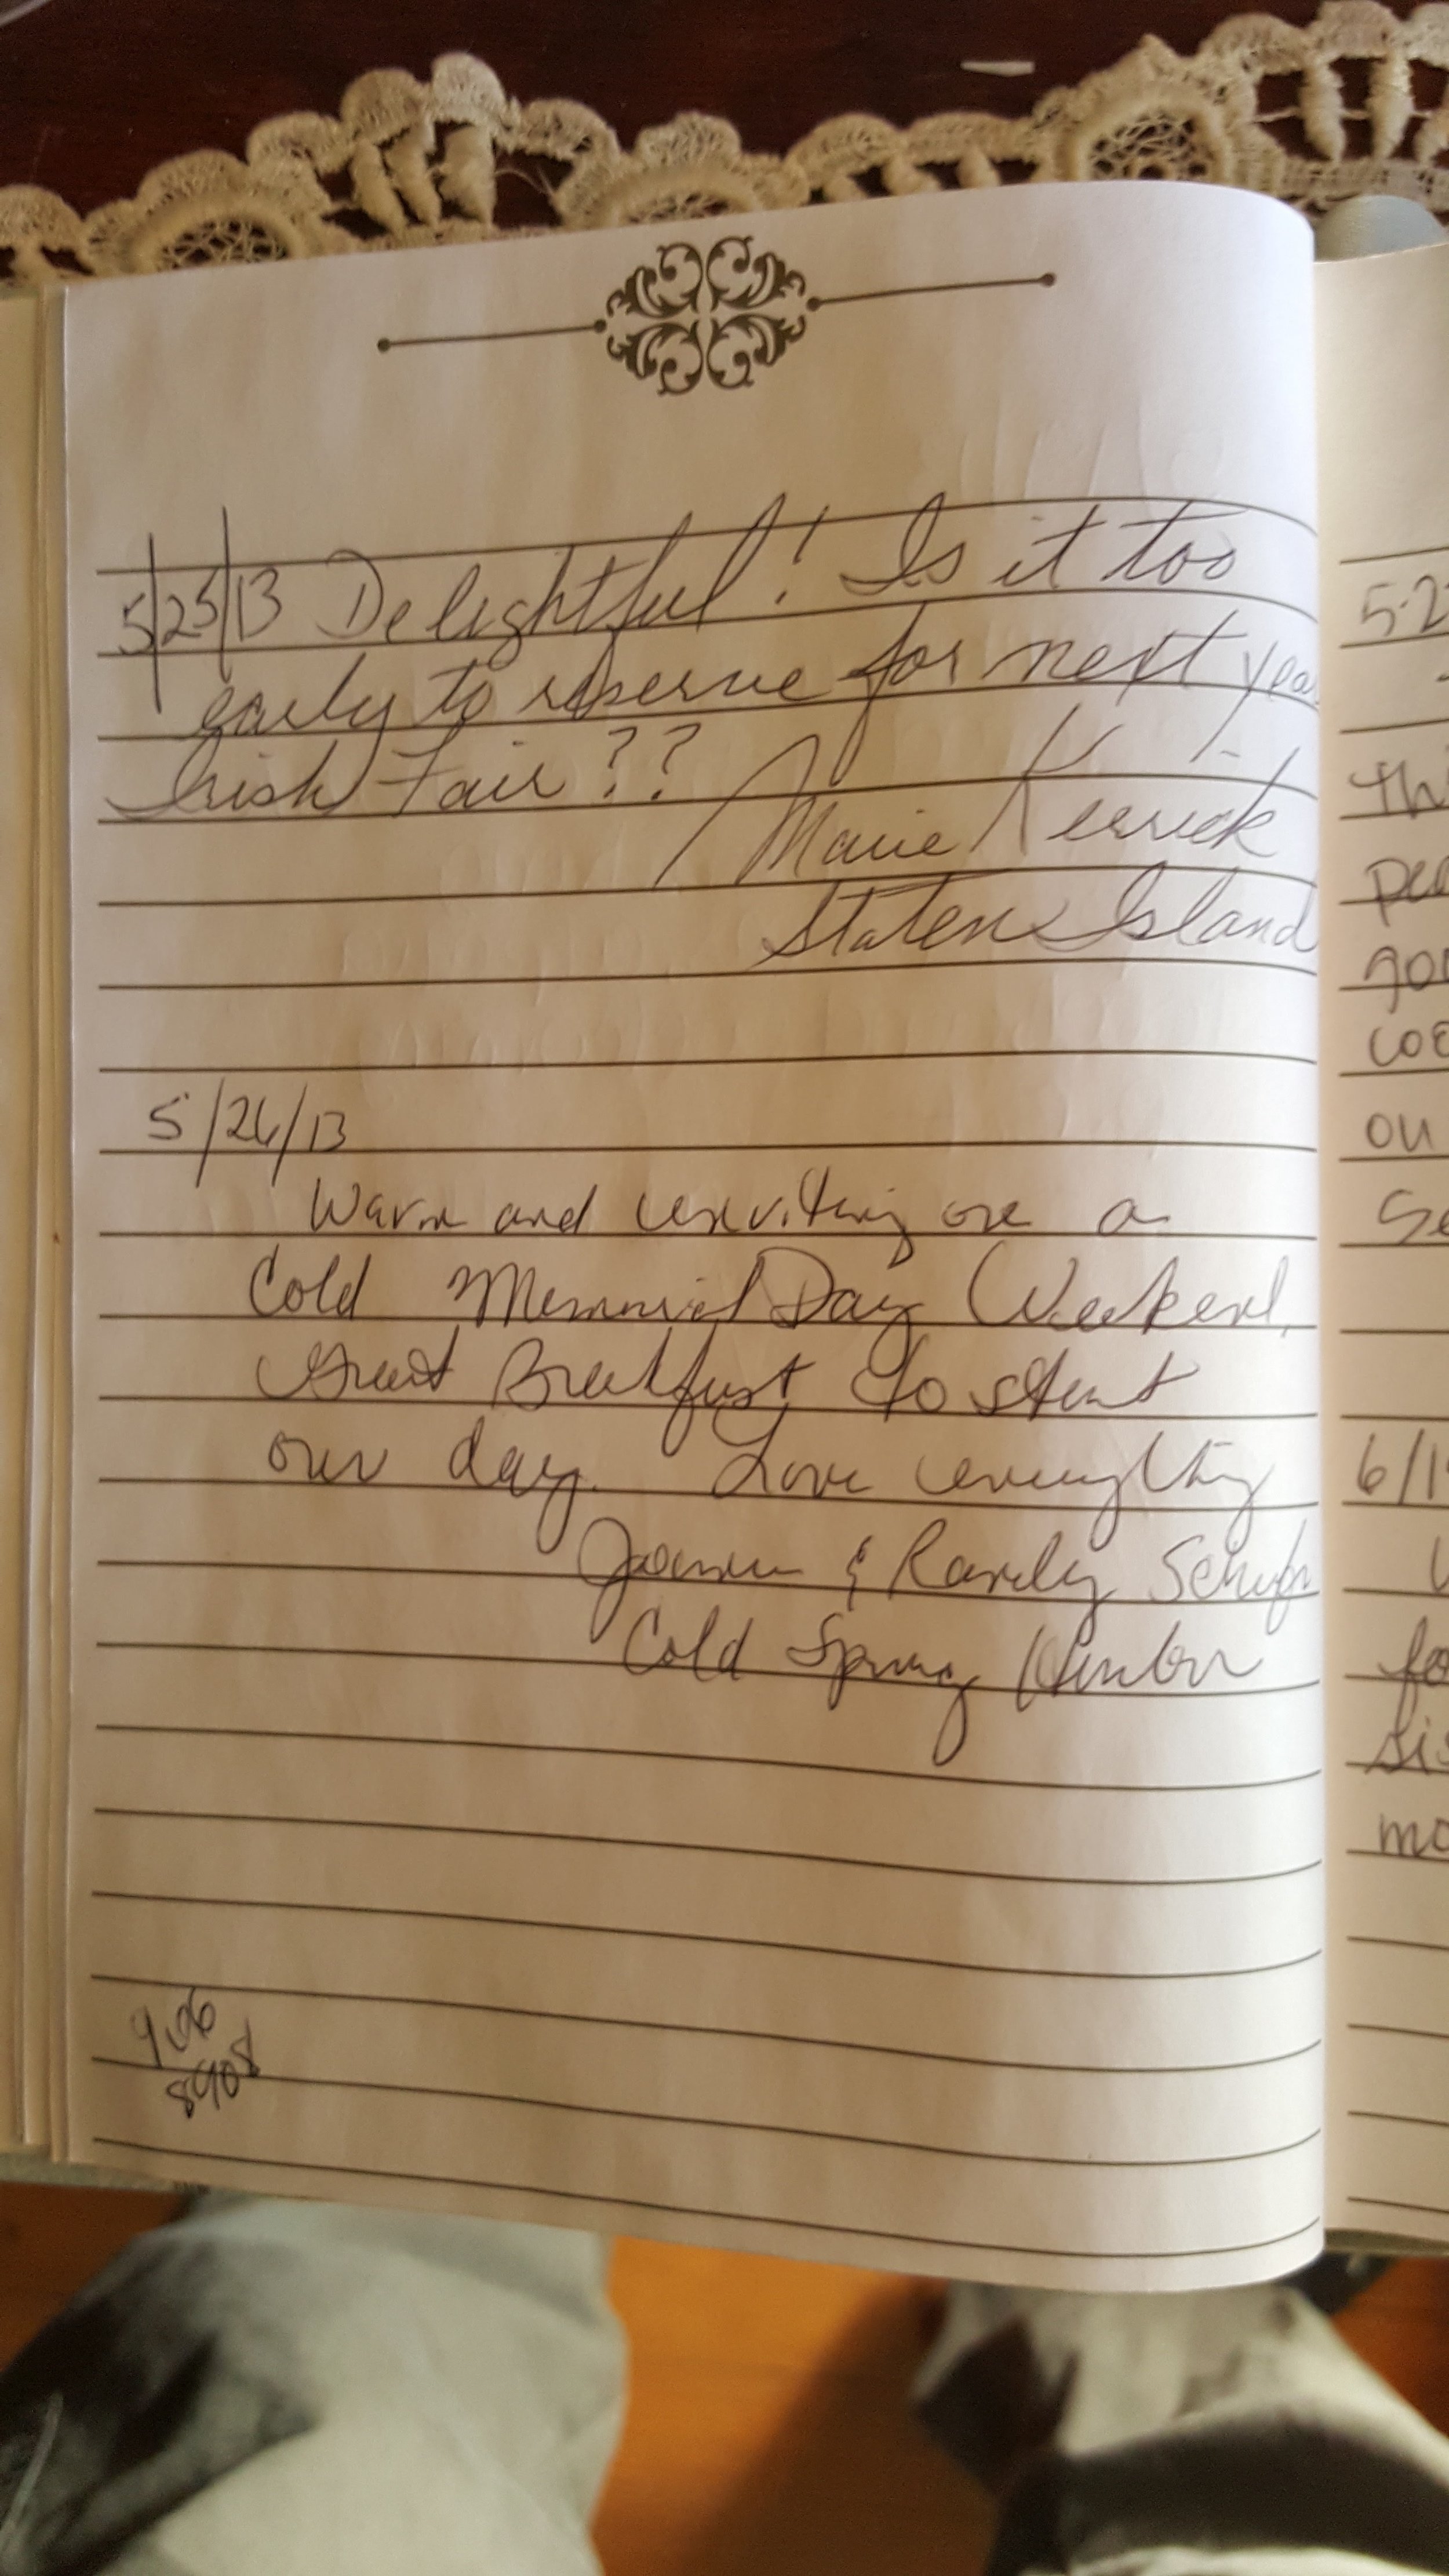 5/25/13 Delightful! Is it too
early to reserve for next year
Irish Fair??
Marie Kerrick
Staten Island
5/26/13
Warm and inviting on a
Cold Memorial Day Weekend,
Great Breakfast to start
our day. Love everything
& Randy
Cold Spring Harbor
906
8908
5-2
Th
pe
gor
coe
on
Se
6/1
fo
sis
mo